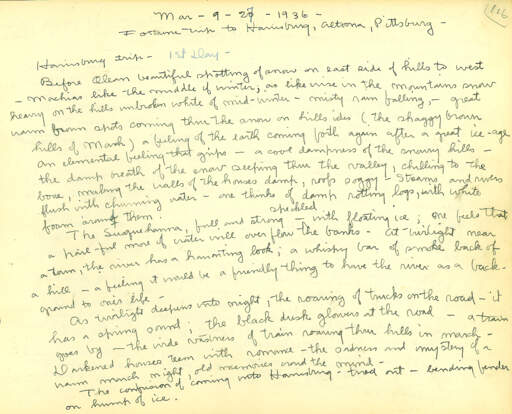 Mar - 9 - 27 - 1936 -
166
Fortune trip to Harrisburg, Altoona, Pittsburg -
Harrisburg trip - 1st Day -
Before Olean beautiful spotting of snow on east side of hills to west
- Machias like the middle of winter, as likewise in the mountains snow
heavy on the hills unbroken white of mid-winter - misty rain falling, - great
warm brown spots coming thru the snow on hillsides (the shaggy brown
hills of March) a feeling of the earth coming forth again after a great ice-age
an elemental feeling that grips - a cool dampness of the snowy hills -
the damp breath of the snow seeping thru the valley, chilling to the
bone, making the walls of the houses damp, roofs soggy - Streams and rivers
flush with churning water - one thinks of damp rotting logs, with white
foam around them. speckled
The Susquehanna, full and strong - with floating ice; one feels that
a pail-full more of water will overflow the banks - at twilight near
a town, the river has a haunting look; a whispy bar of smoke back of
a hill - a feeling it would be a friendly thing to have the river as a back-
ground to one's life -
As twilight deepens into night, the roaring of trucks on the road - it
has a spring sound; the black dusk glowers at the road - a train
goes by - the wide vastness of train roaring thru hills in march -
Darkened houses teem with romance - the sadness and mystery of a
warm march night, old memories crowd the mind -
The confusion of coming into Harrisburg - tired out - bending fender
on hump of ice.